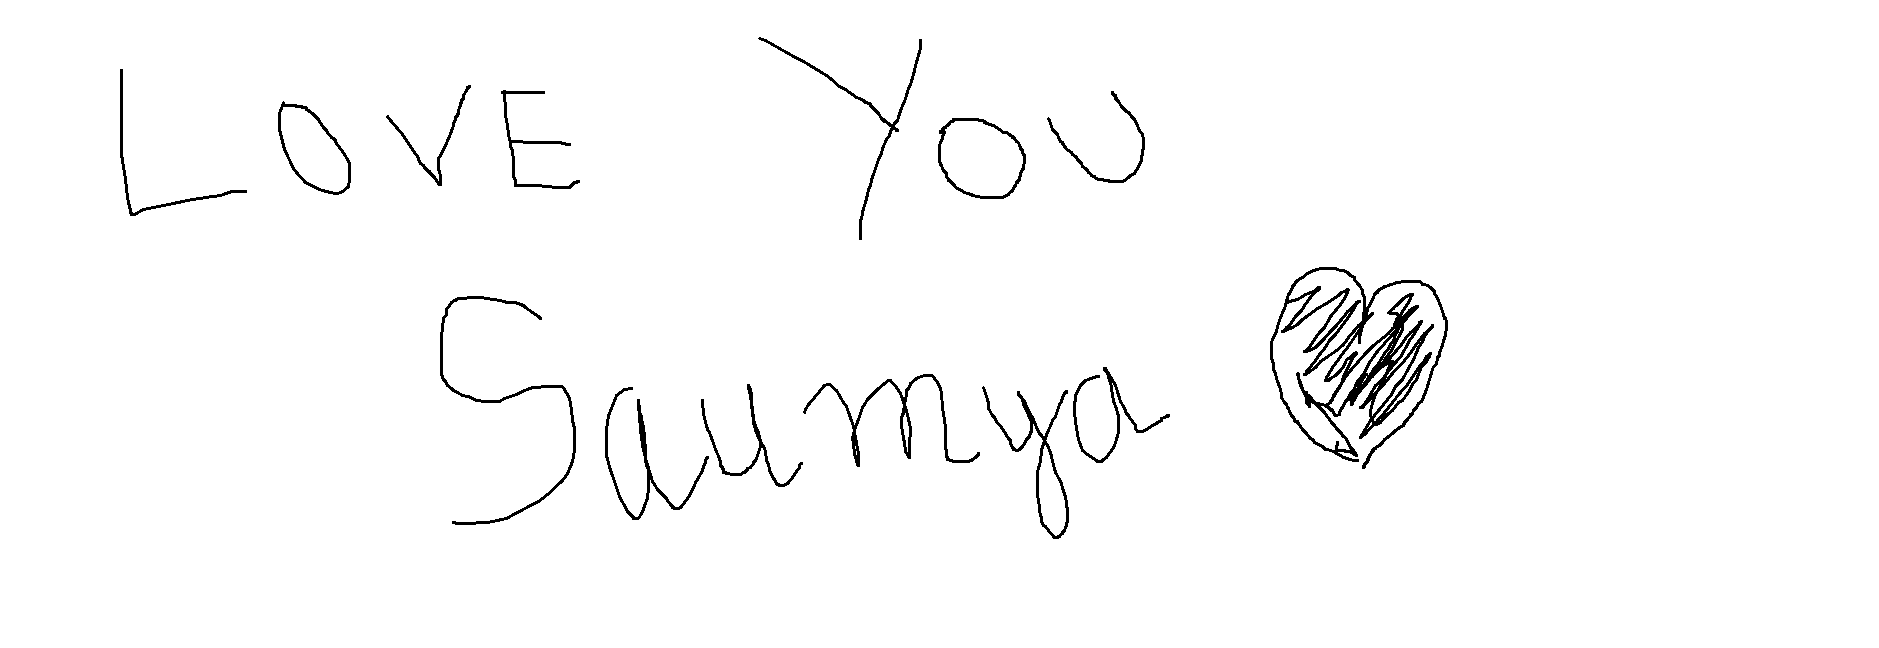 LOVE YOU
Saumya